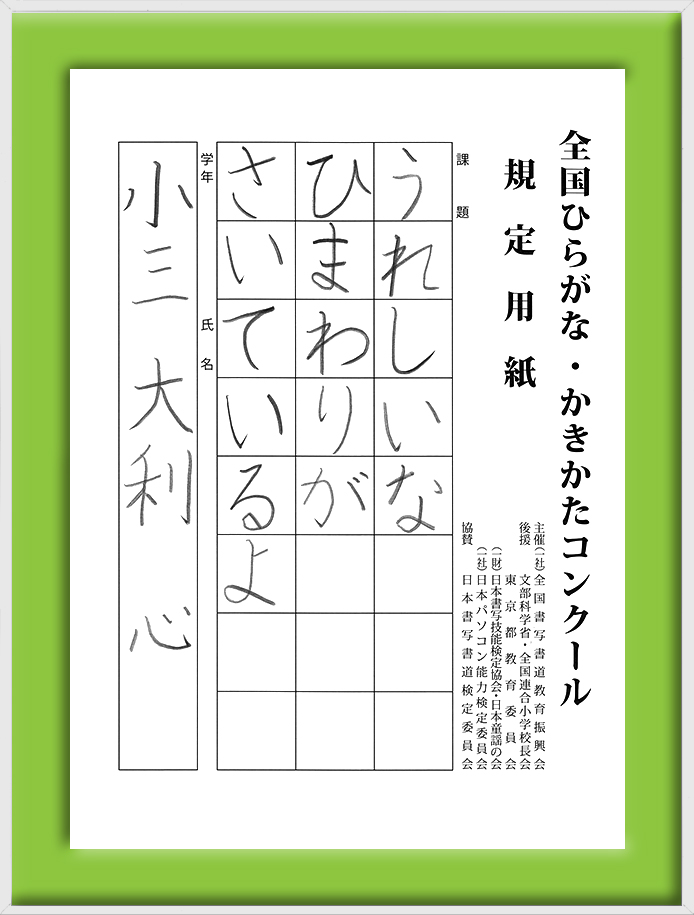 全国ひらがな・かきかたコンクール
規定用紙
主催 (一社)全国書写書道教育振興会
後援 文部科学省・全国連合小学校長会
東京都教育委員会
(一財)日本書写技能検定協会・日本童謡の会
(一社)日本パソコン能力検定委員会
協賛 日本書写書道検定委員会
課題
うれしいな
ひまわりが
さいているよ
学年 氏名
小三 大利 心